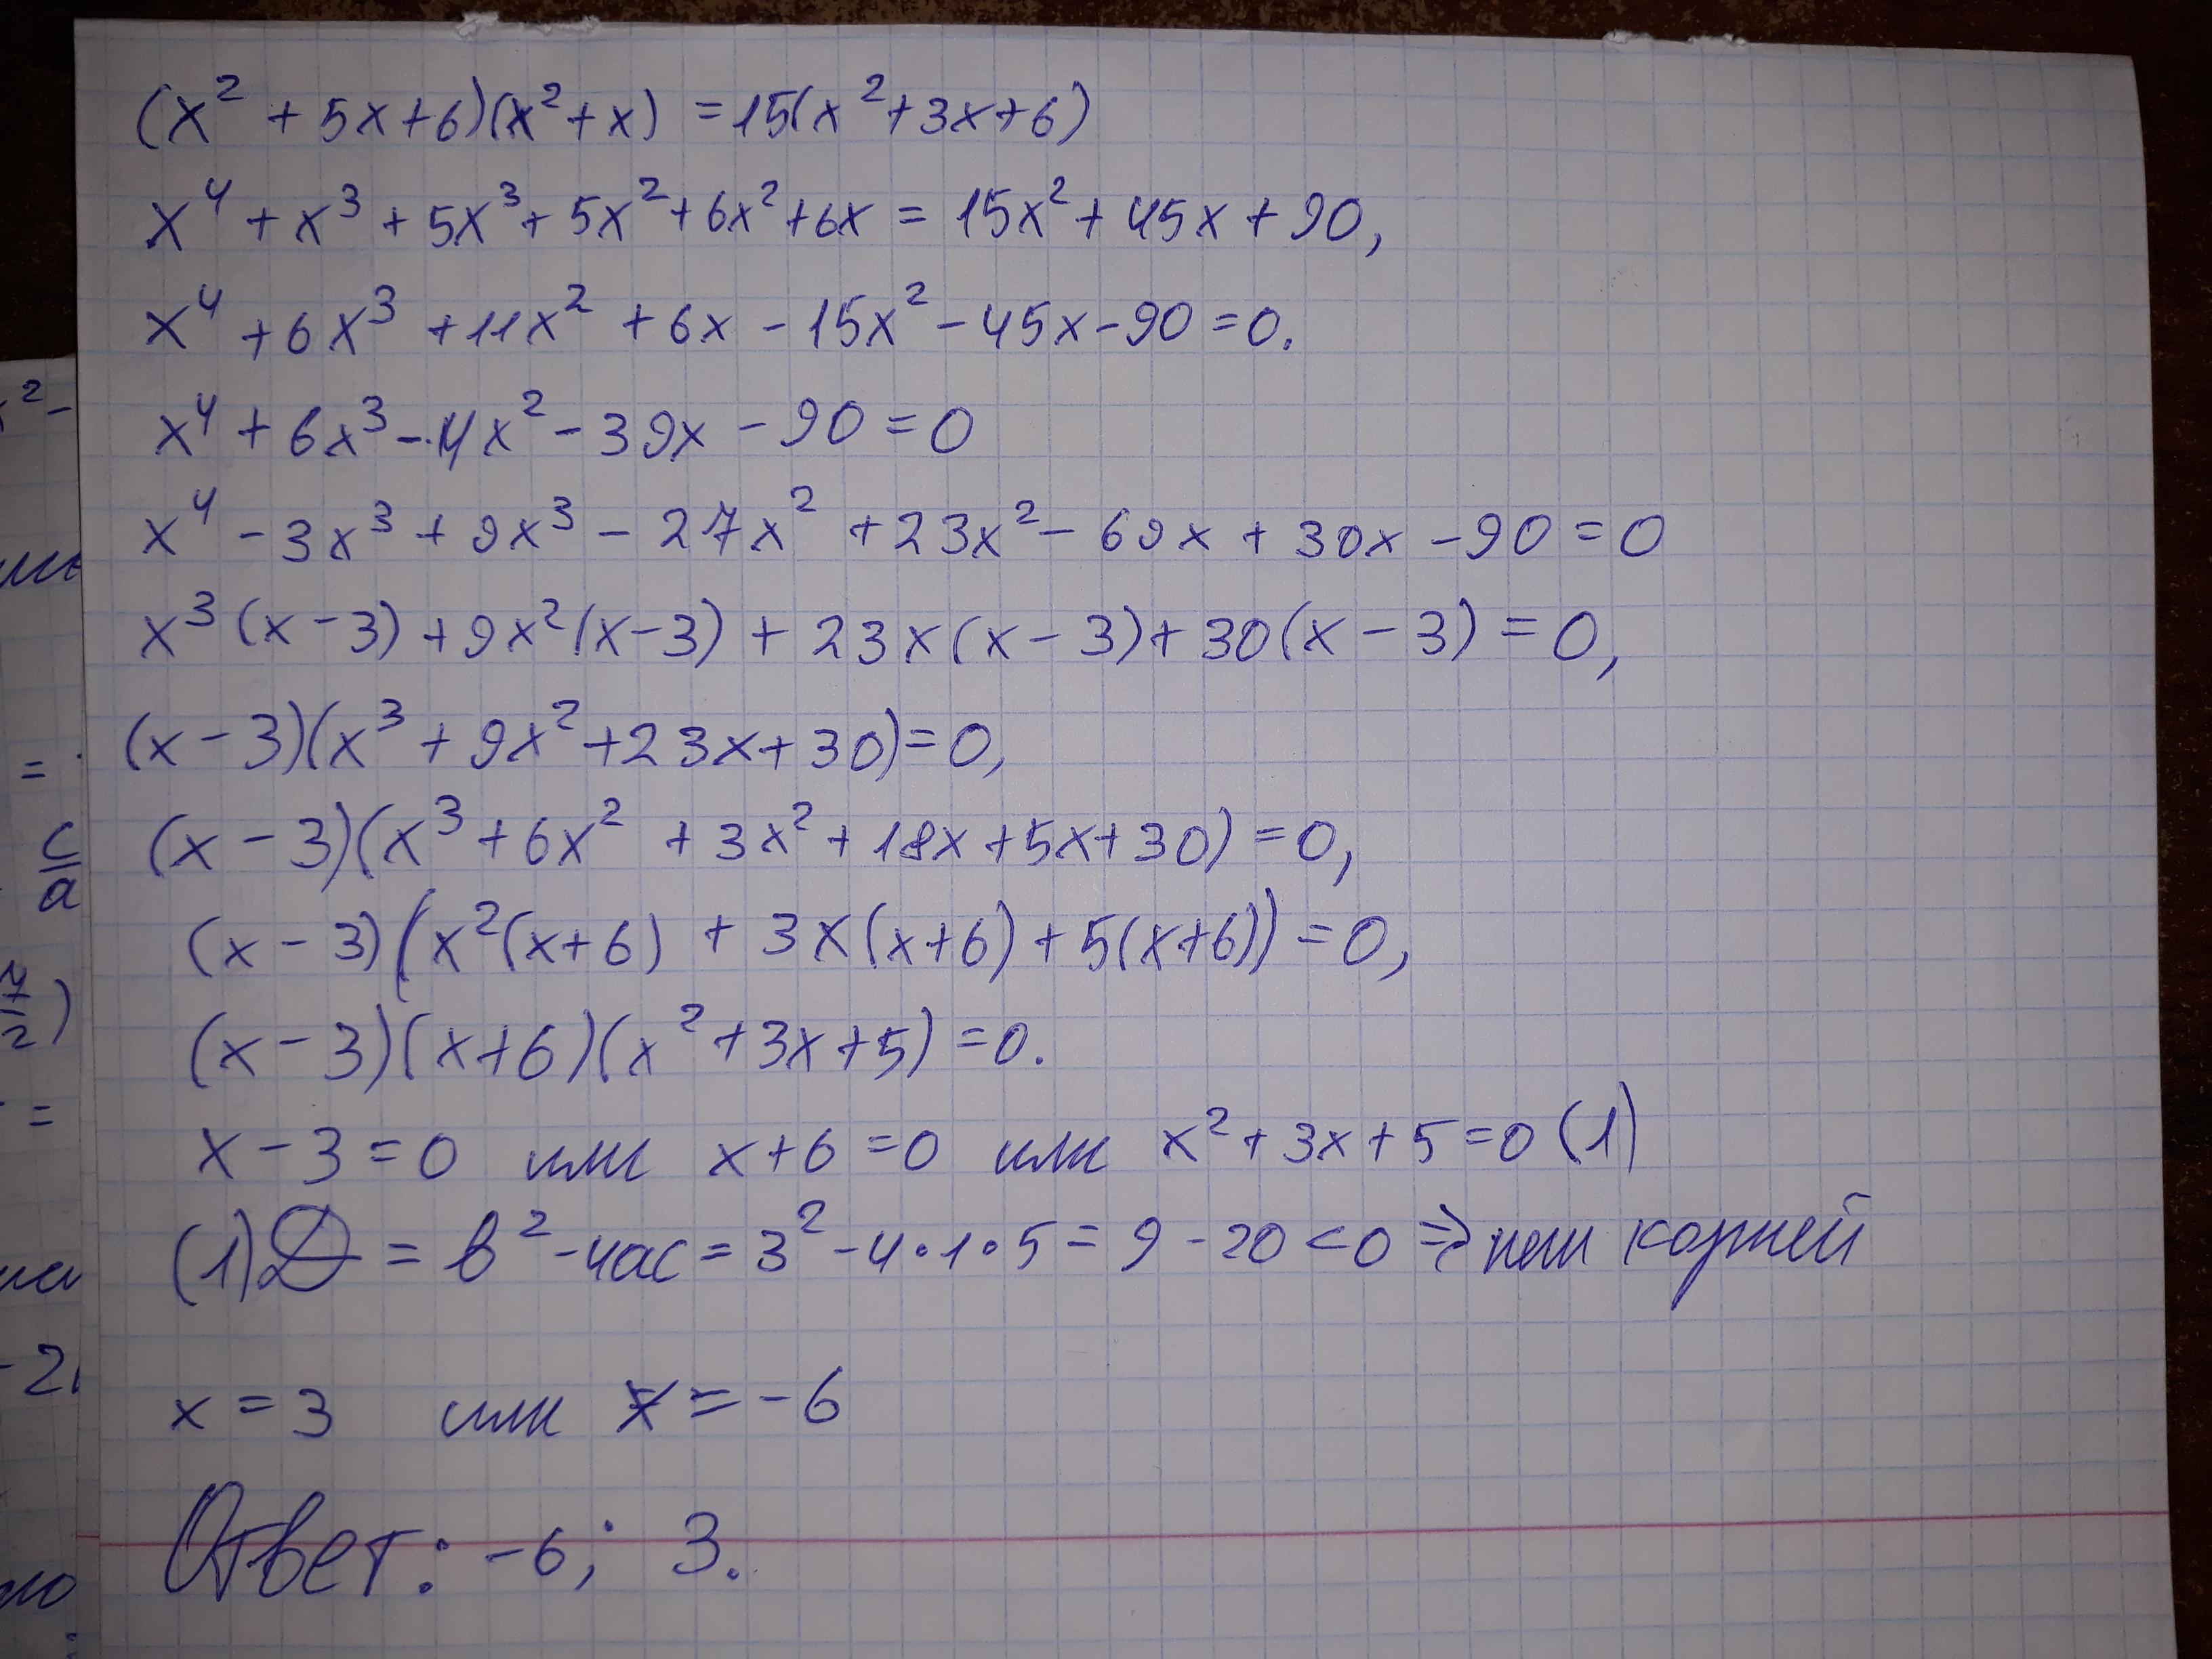 (x² + 5x+6)(x²+x) = 15(x²+3x+6)
x⁴ + x³ + 5x³ + 5x² + 6x² + 6x = 15x² + 45x + 90,
x⁴ + 6x³ + 11x² + 6x - 15x² - 45x - 90 = 0.
x⁴ + 6x³ - 4x² - 39x - 90 = 0
x⁴ - 3x³ + 9x³ - 27x² + 23x² - 69x + 30x - 90 = 0
x³(x-3) + 9x²(x-3) + 23x(x-3) + 30(x-3) = 0,
(x-3)(x³ + 9x² + 23x + 30) = 0,
(x-3)(x³ + 6x² + 3x² + 18x + 5x + 30) = 0,
(x-3)(x²(x+6) + 3x(x+6) + 5(x+6)) = 0,
(x-3)(x+6)(x² + 3x + 5) = 0.
x-3 = 0 или x+6 = 0 или x² + 3x + 5 = 0 (1)
(1) D = в² - 4ac = 3² - 4·1·5 = 9 - 20 < 0 ⇒ нет корней
x = 3 или x = -6
Ответ: -6; 3.
x² -
=
c
a
7
2)
=